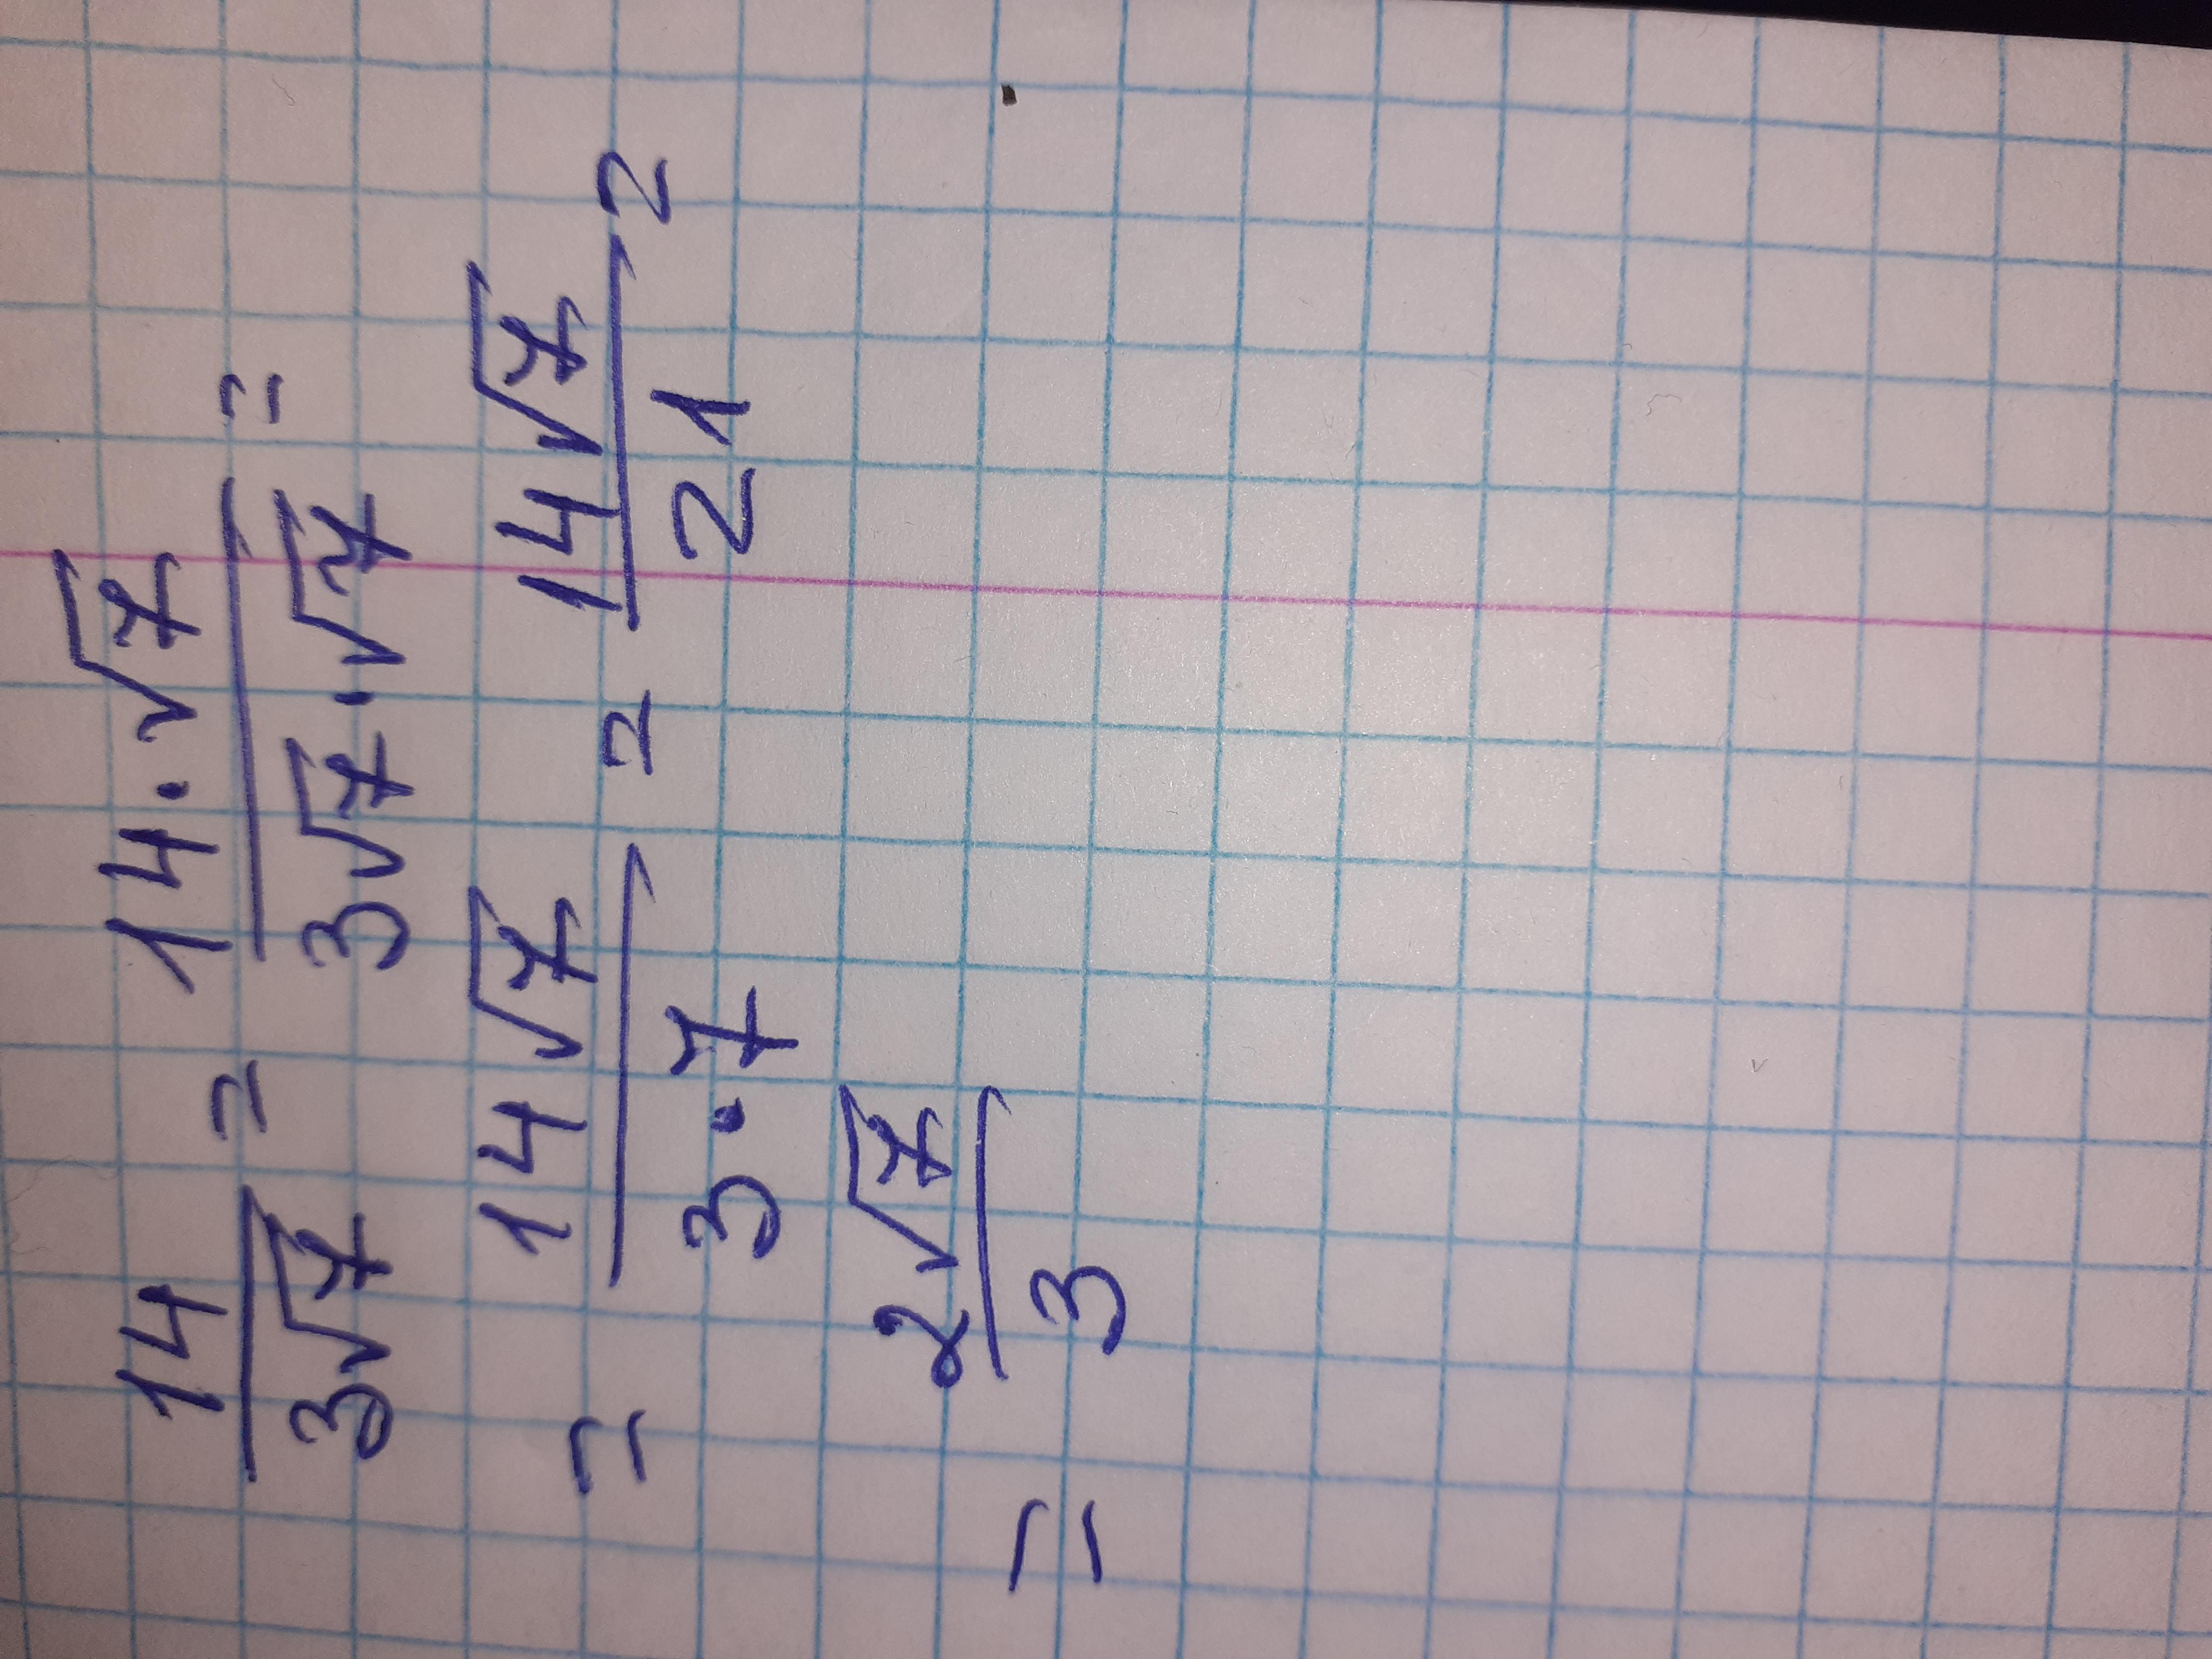 14/(3√7) = (14·√7)/(3√7·√7) =
= (14√7)/(3·7) = (14√7)/21 =
= (2√7)/3